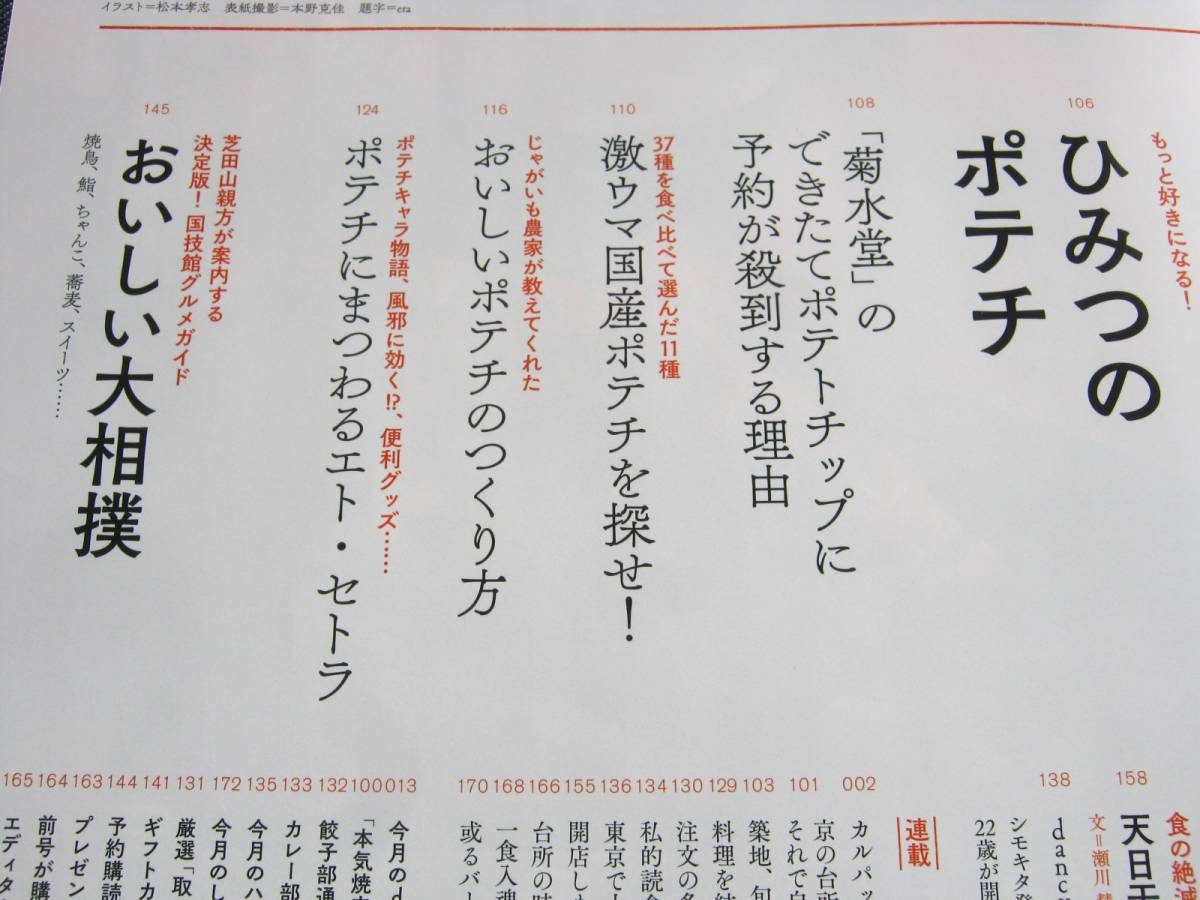 イラスト＝松本孝志　表紙撮影＝本野克佳　題字＝era
106
もっと好きになる！
ひみつの
ポテチ
108
「菊水堂」の
できたてポテトチップに
予約が殺到する理由
110
37種を食べ比べて選んだ11種
激ウマ国産ポテチを探せ！
116
じゃがいも農家が教えてくれた
おいしいポテチのつくり方
124
ポテチキャラ物語、風邪に効く!?、便利グッズ……
ポテチにまつわるエト・セトラ
145
芝田山親方が案内する
決定版！国技館グルメガイド
おいしい大相撲
焼鳥、鮨、ちゃんこ、蕎麦、スイーツ……
食の絶滅
158
天日干
文＝瀬川
138
danc
シモキタ発
22歳が開
連載
002
カルパッ
京の台所
101
それで白
103
築地、旬
129
料理を結
130
注文の多
134
私的読食
136
東京で十
155
開店した
166
台所の時
168
一食入魂
170
或るバー
013
今月のd
100
「本気焼肉
132
餃子部通
133
カレー部
135
今月のハ
172
今月のレ
131
厳選「取
141
ギフトカ
144
予約購読
163
プレゼン
164
前号が購
165
エディタ